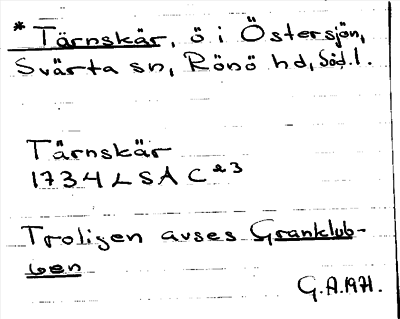 * Tärnskär, ö i Östersjön,
Svärta sn, Rönö hd, Söd. l.
Tärnskär
1734 LSA C 23
Troligen avses Granklub-
ben
G.A. 1971.